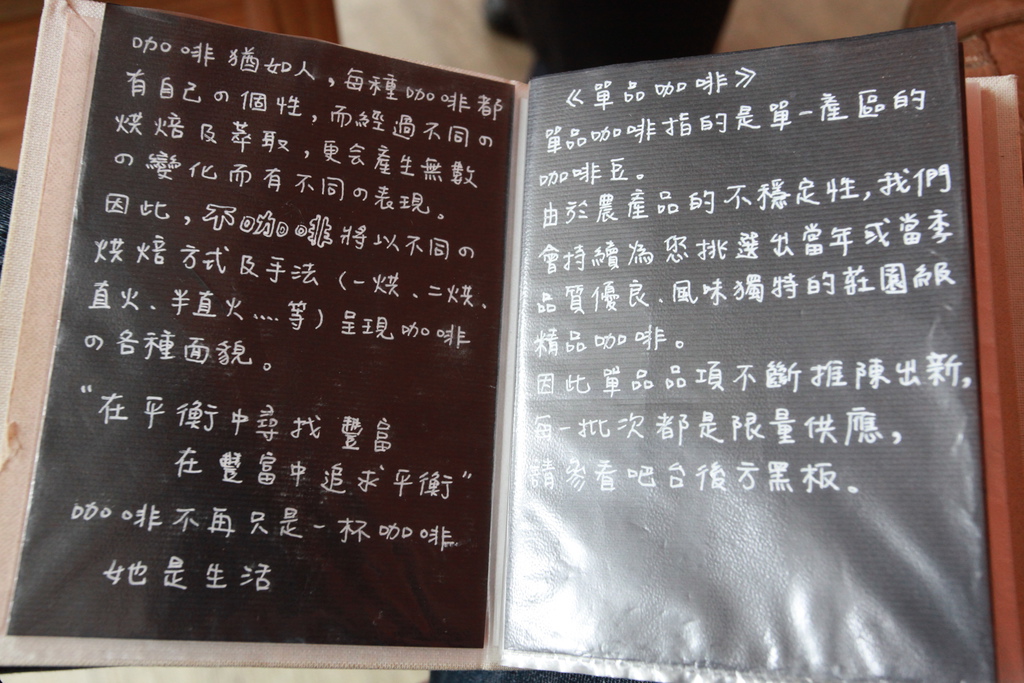 咖啡猶如人，每種咖啡都
有自己の個性，而經過不同の
烘焙及萃取，更会產生無數
の變化而有不同の表現。
因此，不咖啡將以不同の
烘焙方式及手法（一烘、二烘、
直火、半直火....等）呈現咖啡
の各種面貌。
“在平衡中尋找豐富
在豐富中追求平衡”
咖啡不再只是一杯咖啡
她是生活
《單品咖啡》
單品咖啡指的是單一產區的
咖啡豆。
由於農產品的不穩定性，我們
會持續為您挑選出當年或當季
品質優良、風味獨特的莊園級
精品咖啡。
因此單品品項不斷推陳出新，
每一批次都是限量供應，
請參看吧台後方黑板。